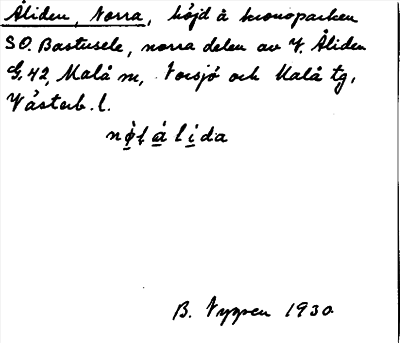 Åliden, Norra, höjd å kronoparken
SO. Bastusele, norra delen av V. Åliden
G. 42, Malå m, Norsjö och Malå tg,
Västerb. l.
B. Nygren 1930